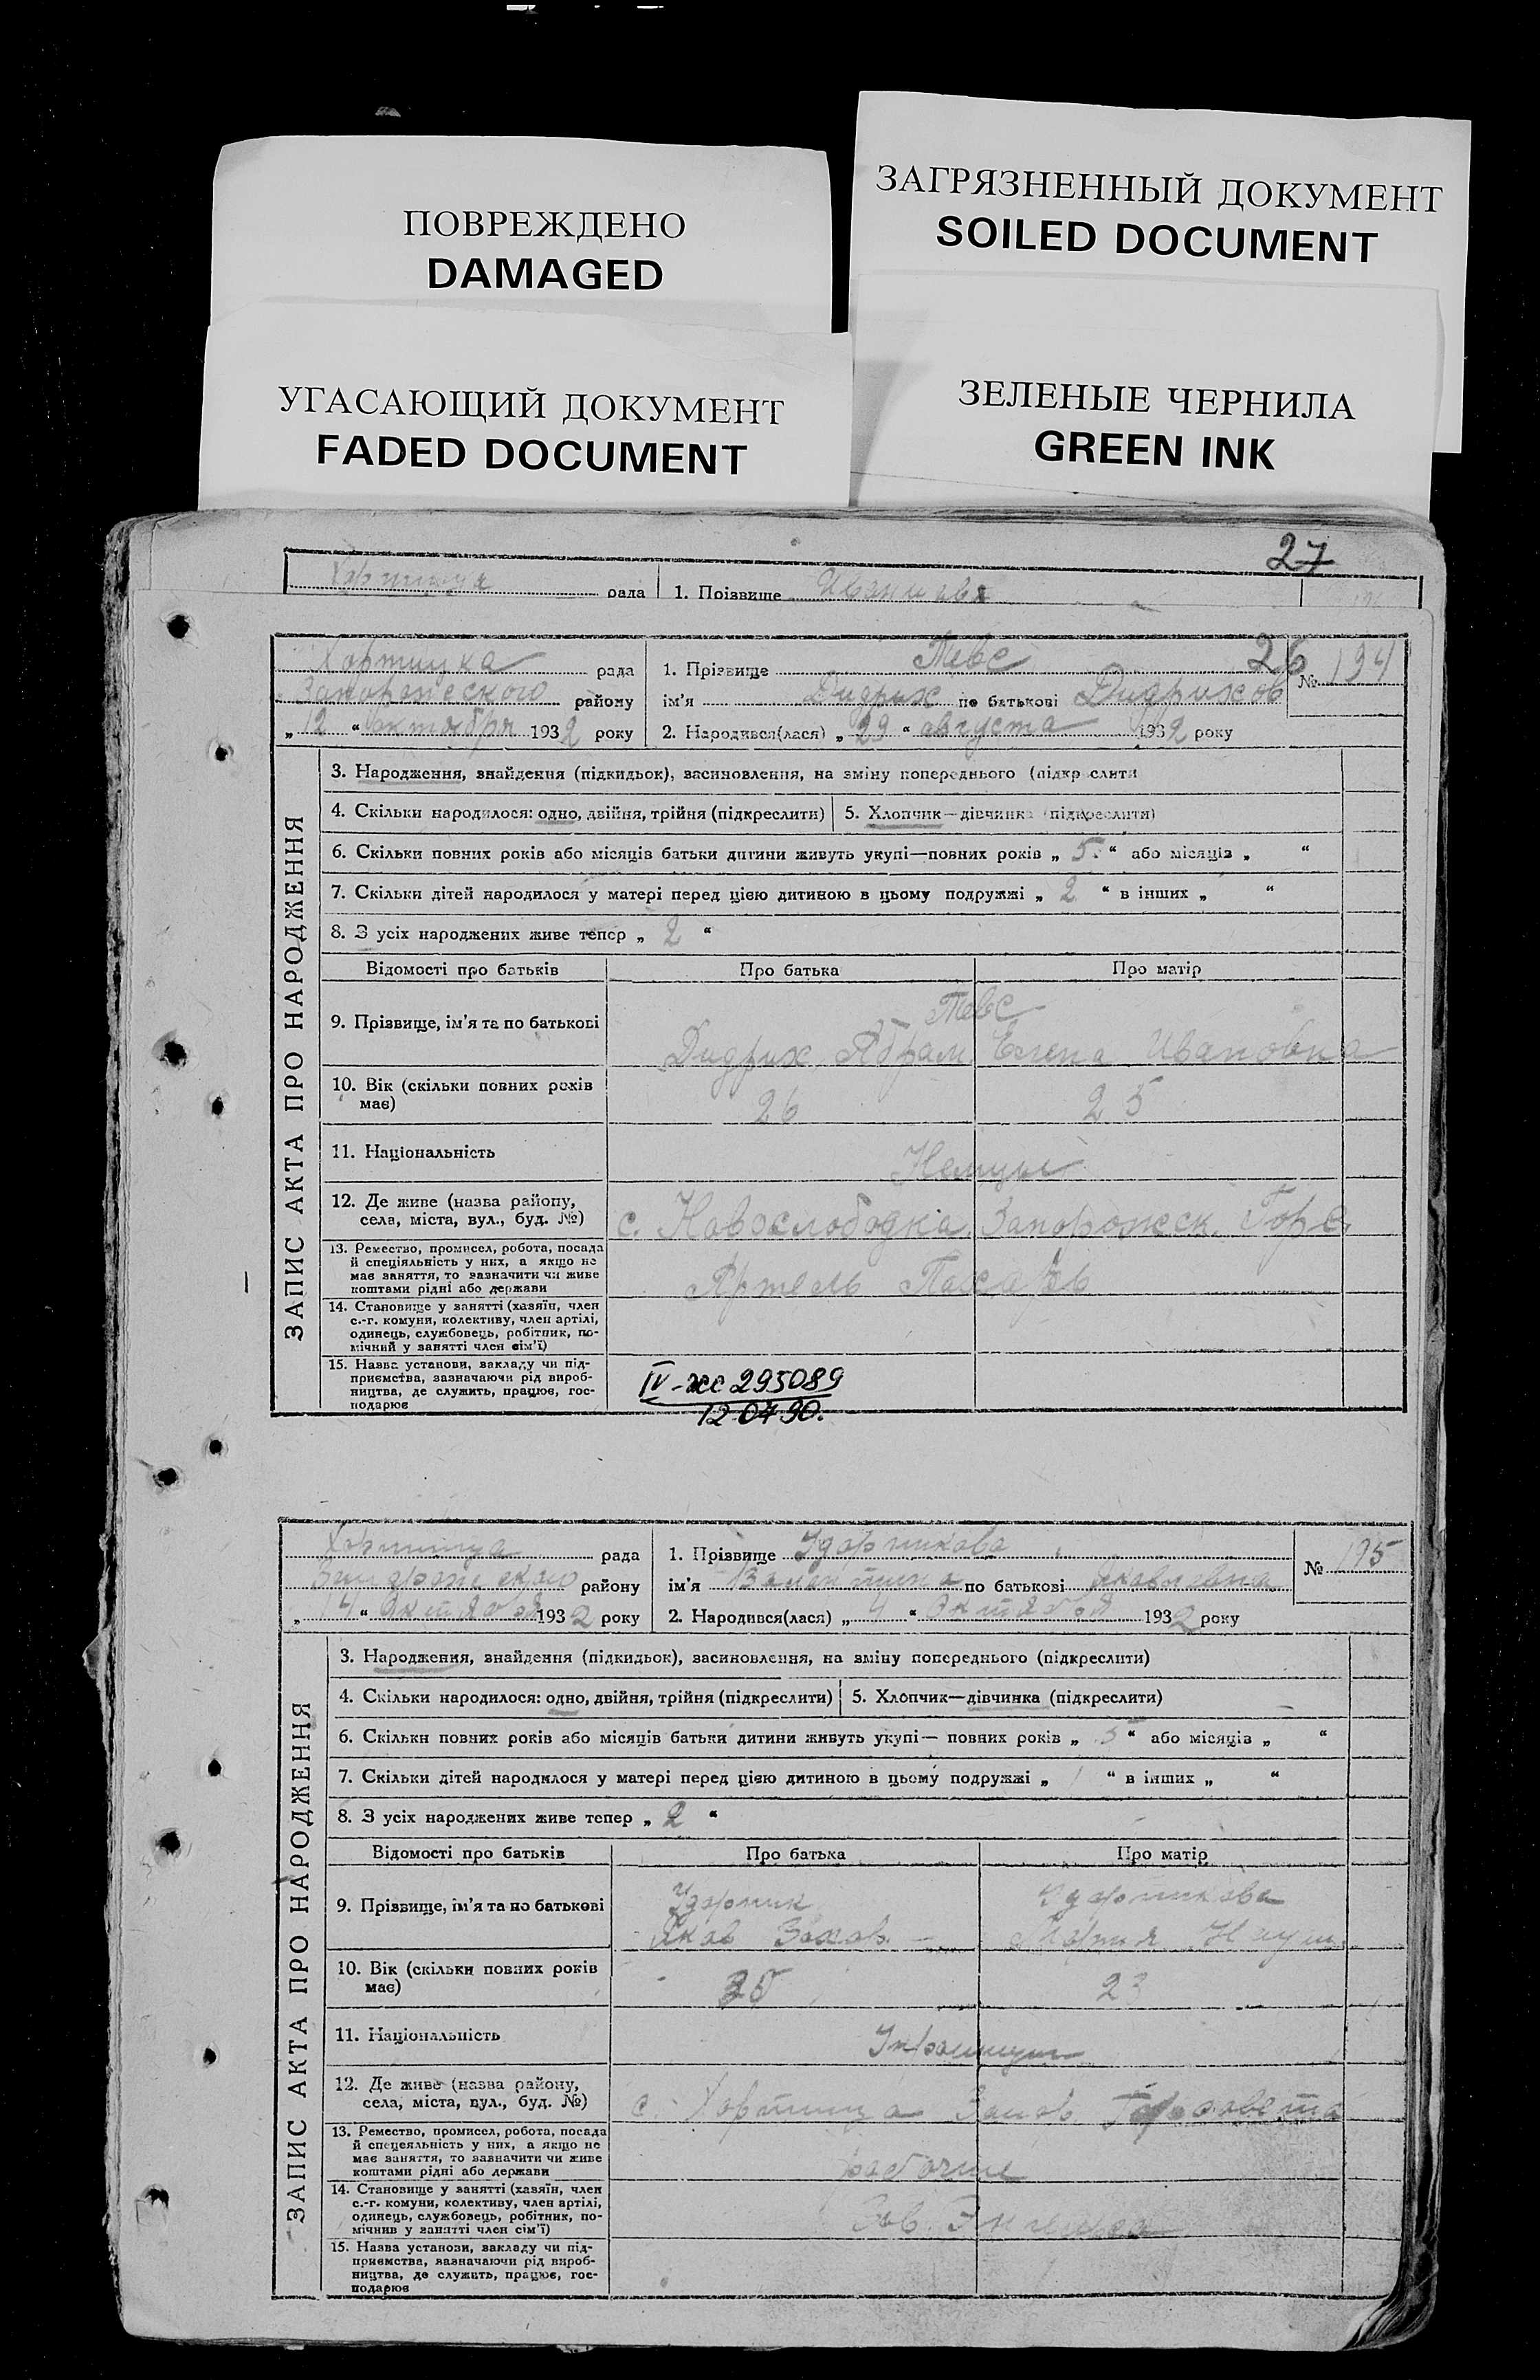 ПОВРЕЖДЕНО
DAMAGED
ЗАГРЯЗНЕННЫЙ ДОКУМЕНТ
SOILED DOCUMENT
УГАСАЮЩИЙ ДОКУМЕНТ
FADED DOCUMENT
ЗЕЛЕНЫЕ ЧЕРНИЛА
GREEN INK
27
Хортица рада 1. Прізвище
Хортицка рада 1. Прізвище Тевс 26 № 194
Запорожского району ім'я Дидрих по батькові Дидрихов
„ 12 “ октября 1932 року 2. Народився(лася) „ 29 “ августа 1932 року
ЗАПИС АКТА ПРО НАРОДЖЕННЯ
3. Народження, знайдення (підкидьок), засиновлення, на зміну попереднього (підкреслити
4. Скільки народилося: одно, двійня, трійня (підкреслити) 5. Хлопчик—дівчинка (підкреслити)
6. Скільки повних років або місяців батьки дитини живуть укупі—повних років „ 5. “ або місяців „ “
7. Скільки дітей народилося у матері перед цією дитиною в цьому подружжі „ 2 “ в інших „ “
8. З усіх народжених живе тепер „ 2 “
Відомості про батьків Про батька Про матір
Тевс
9. Прізвище, ім'я та по батькові Дидрих Абрам. Елена Ивановна
10. Вік (скільки повних років має) 26 25
11. Національність Немцы
12. Де живе (назва району, села, міста, вул., буд. №) с. Новослободка Запорожск. Горс.
13. Ремество, промисел, робота, посада й спеціяльність у них, а якщо не має заняття, то зазначити чи живе коштами рідні або держави Артель Пахарь
14. Становище у занятті (хазяїн, член с.-г. комуни, колективу, член артілі, одинець, службовець, робітник, помічний у занятті член сім'ї)
15. Назва установи, закладу чи підприємства, зазначаючи рід виробництва, де служить, працює, господарює
IV-жс 295089
12 07 90.
Хортица рада 1. Прізвище Ударникова № 195
району ім'я Валентина по батькові Яковлевна
„ 14 “ Октября 1932 року 2. Народився(лася) „ 4 “ Октября 1932 року
ЗАПИС АКТА ПРО НАРОДЖЕННЯ
3. Народження, знайдення (підкидьок), засиновлення, на зміну попереднього (підкреслити)
4. Скільки народилося: одно, двійня, трійня (підкреслити) 5. Хлопчик—дівчинка (підкреслити)
6. Скільки повних років або місяців батьки дитини живуть укупі— повних років „ 5 “ або місяців „ “
7. Скільки дітей народилося у матері перед цією дитиною в цьому подружжі „ 1 “ в інших „ “
8. З усіх народжених живе тепер „ 2 “
Відомості про батьків Про батька Про матір
Ударник Ударникова
9. Прізвище, ім'я та по батькові Яков Захов. Мария Наум.
10. Вік (скільки повних років має) 23
11. Національність Украинцы
12. Де живе (назва району, села, міста, вул., буд. №) с. Хортица Запор. Горсовета
13. Ремество, промисел, робота, посада й спецеяльність у них, а якщо не має заняття, то зазначити чи живе коштами рідні або держави рабочие
14. Становище у занятті (хазяїн, член с.-г. комуни, колективу, член артілі, одинець, службовець, робітник, помічнив у занятті член сім'ї) Зав. Энгельса
15. Назва установи, закладу чи підприємства, зазначаючи рід виробництва, де служить, працює, господарює